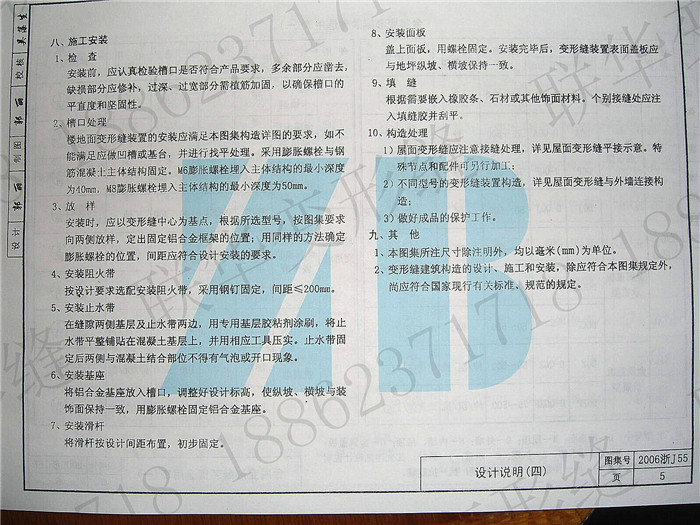 八、施工安装
1、检 查
安装前，应认真检验槽口是否符合产品要求，多余部分应凿去，
缺损部分应修补，过深、过宽部分需植筋加固，以确保槽口的
平直度和坚固性。
2、槽口处理
楼地面变形缝装置的安装应满足本图集构造详图的要求，如不
能满足应做凹槽或基台，并进行找平处理。采用膨胀螺栓与钢
筋混凝土主体结构固定。M6膨胀螺栓埋入主体结构的最小深度
为40mm，M8膨胀螺栓埋入主体结构的最小深度为50mm。
3、放 样
安装时，应以变形缝中心为基点，根据所选型号，按图集要求
向两侧放样，定出固定铝合金框架的位置；用同样的方法确定
膨胀螺栓的位置，间距应符合设计安装的要求。
4、安装阻火带
按设计要求选配安装阻火带，采用钢钉固定，间距≤200mm。
5、安装止水带
在缝隙两侧基层及止水带两边，用专用基层胶粘剂涂刷，将止
水带平整铺贴在混凝土基层上，并用相应工具压实。止水带固
定后两侧与混凝土结合部位不得有气泡或开口现象。
6、安装基座
将铝合金基座放入槽口，调整好设计标高，使纵坡、横坡与装
饰面保持一致，用膨胀螺栓固定铝合金基座。
7、安装滑杆
将滑杆按设计间距布置，初步固定。
8、安装面板
盖上面板，用螺栓固定。安装完毕后，变形缝装置表面盖板应
与地坪纵坡、横坡保持一致。
9、填 缝
根据需要嵌入橡胶条、石材或其他饰面材料。个别接缝处应注
入填缝胶并刮平。
10、构造处理
1）屋面变形缝应注意接缝处理，详见屋面变形缝平接示意。特
殊节点和配件可另行加工；
2）不同型号的变形缝装置构造，详见屋面变形缝与外墙连接构
造；
3）做好成品的保护工作。
九、其 他
1、本图集所注尺寸除注明外，均以毫米(mm)为单位。
2、变形缝建筑构造的设计、施工和安装，除应符合本图集规定外，
尚应符合国家现行有关标准、规范的规定。
设计说明(四)
图集号 2006浙J55
页 5
校核
制图 郭丽
设计 郭丽
联华变形缝 18862371718